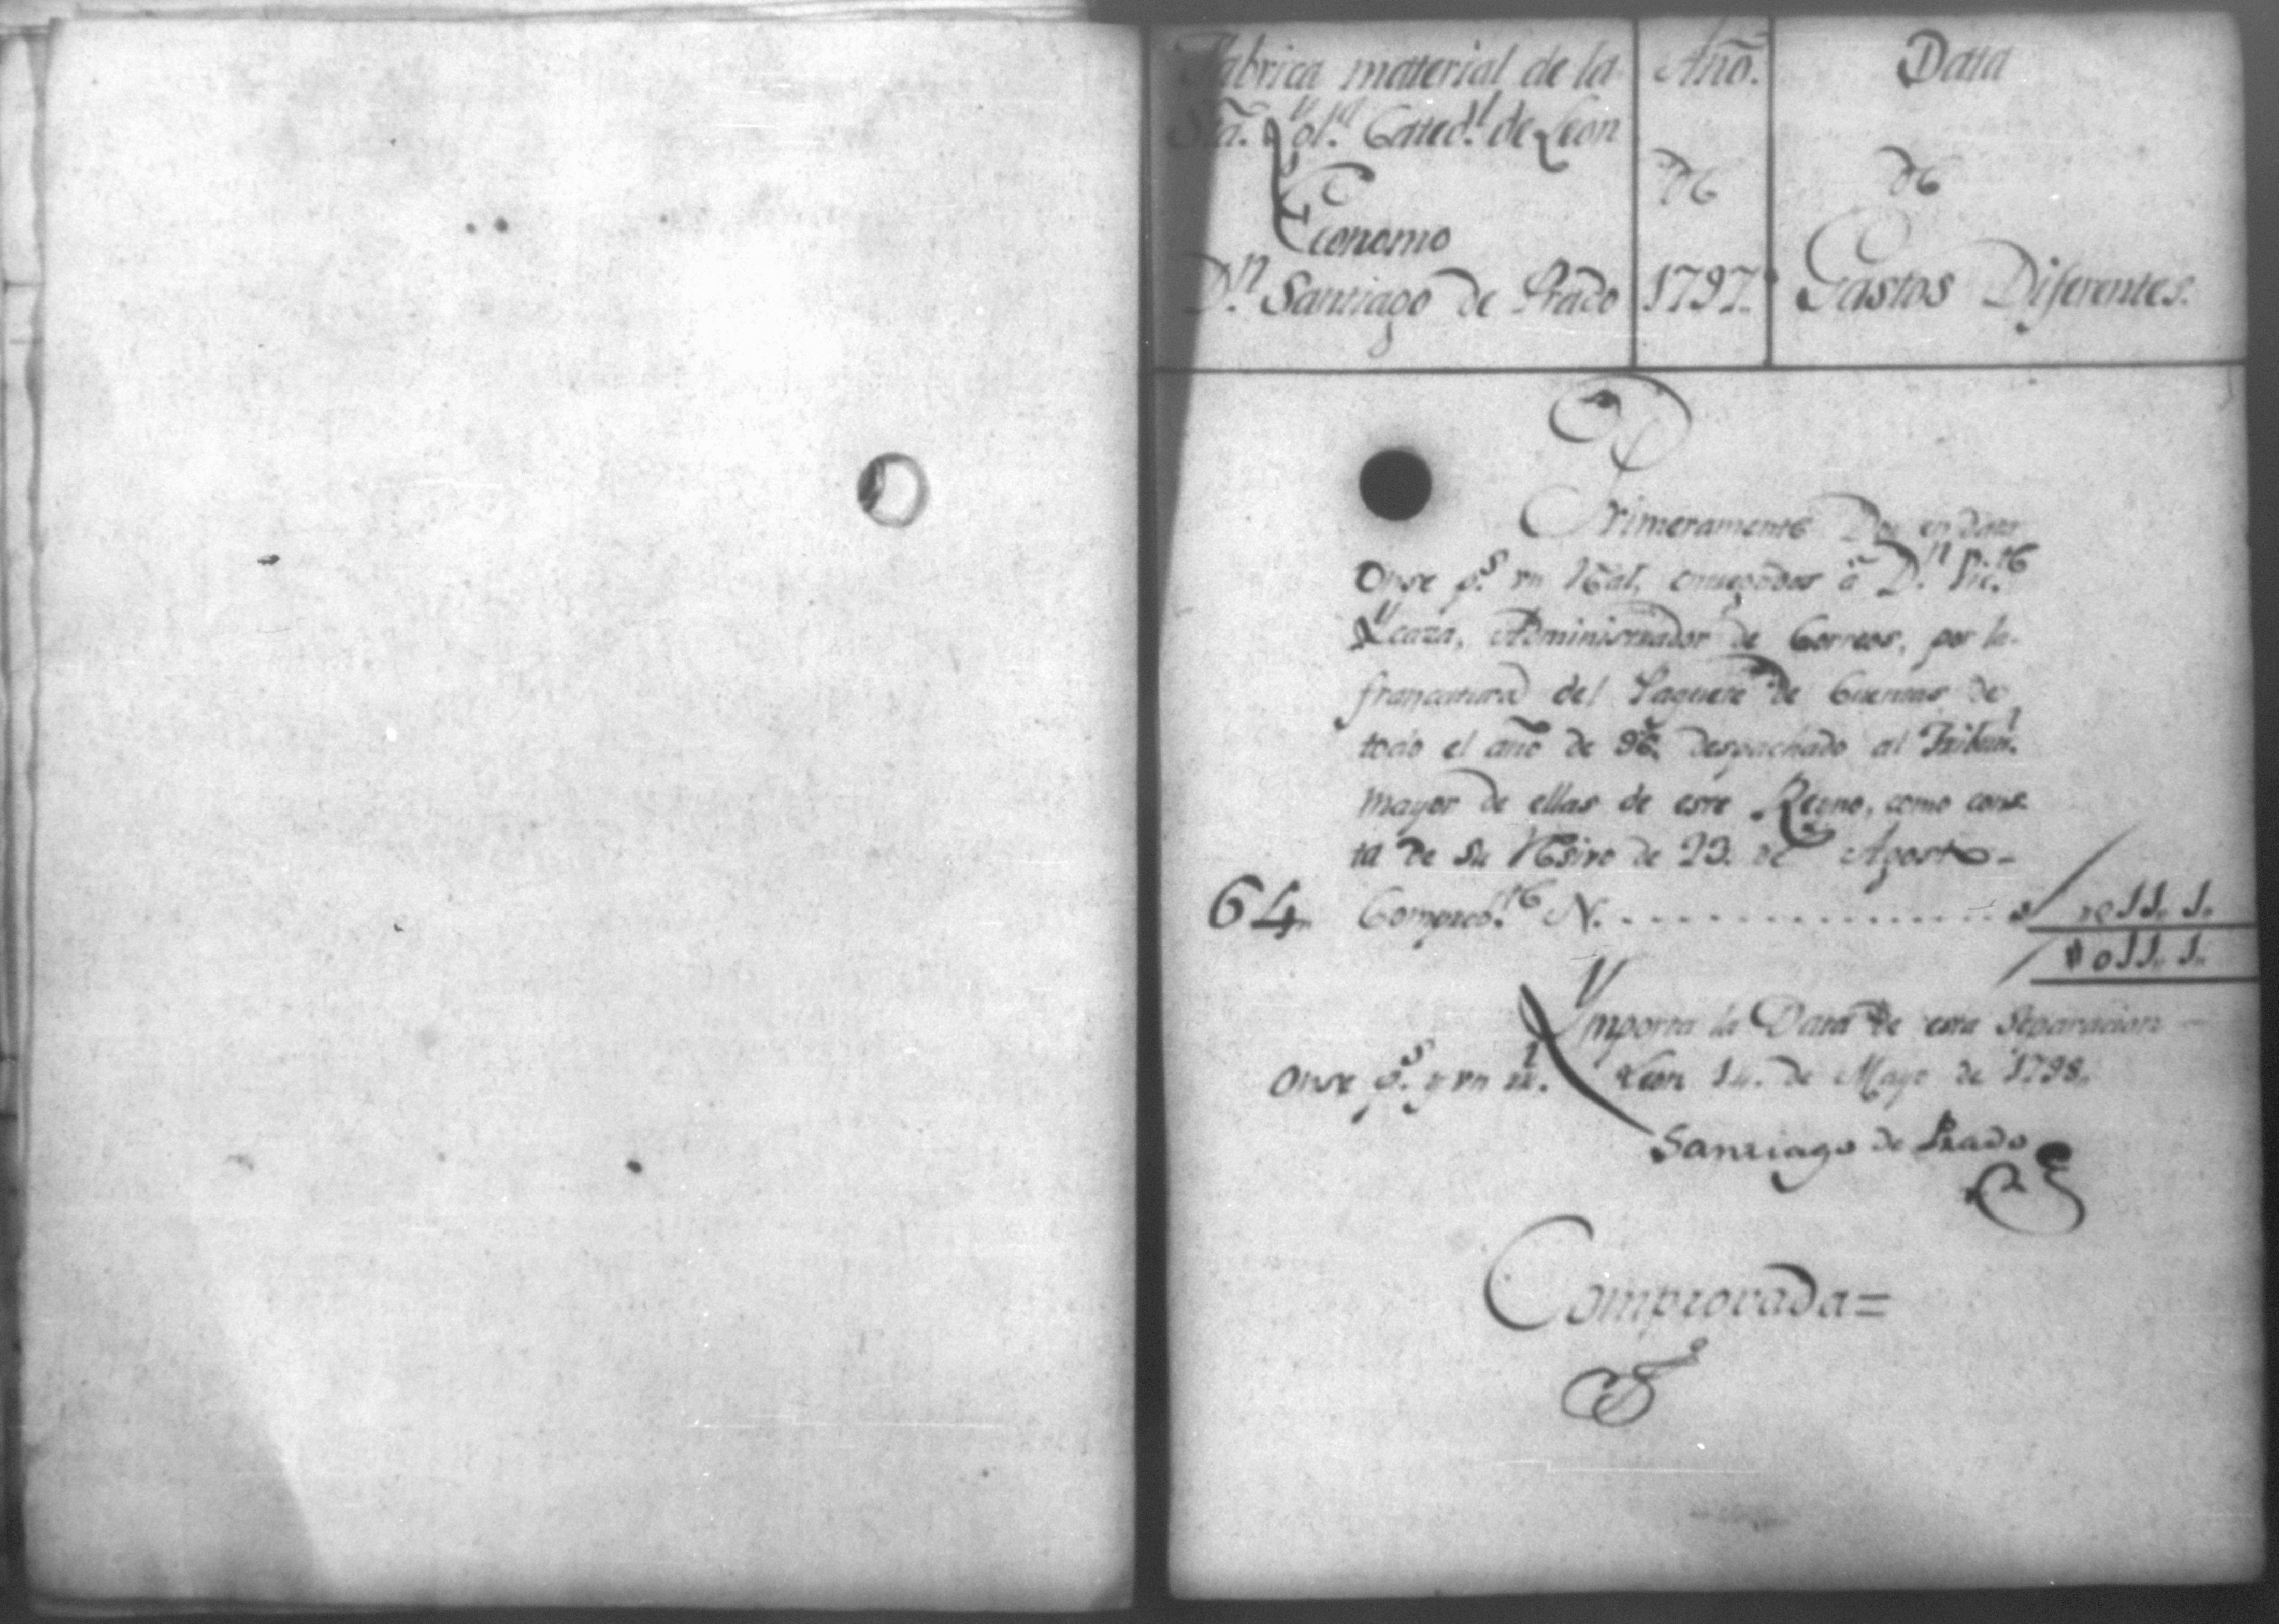 Fabrica material de la
Sta. Ygl.a Catted.l de Leon
Economo
D.n Santiago de Prado
Año.
de
1797.
Data
de
Gastos Diferentes.
Primeramente Doy en data
Onse p.s un Real, entregados á D.n Vic.te
Ycaza, Administrador de Correos, por la
francatura del Paquete de Cuentas de
todo el año de 96. despachado al Tribun.l
mayor de ellas de este Reyno, como cons
ta de su Resivo de 23. de Agosto-
64 Comprob.te N. . . . . . . . . . . . . . . . 011, 1.
011, 1.
Ymporta la Data de esta Separacion
Onse p.s y un rl. Leon 14. de Mayo de 1798.
Santiago de Prado
Comprovada=